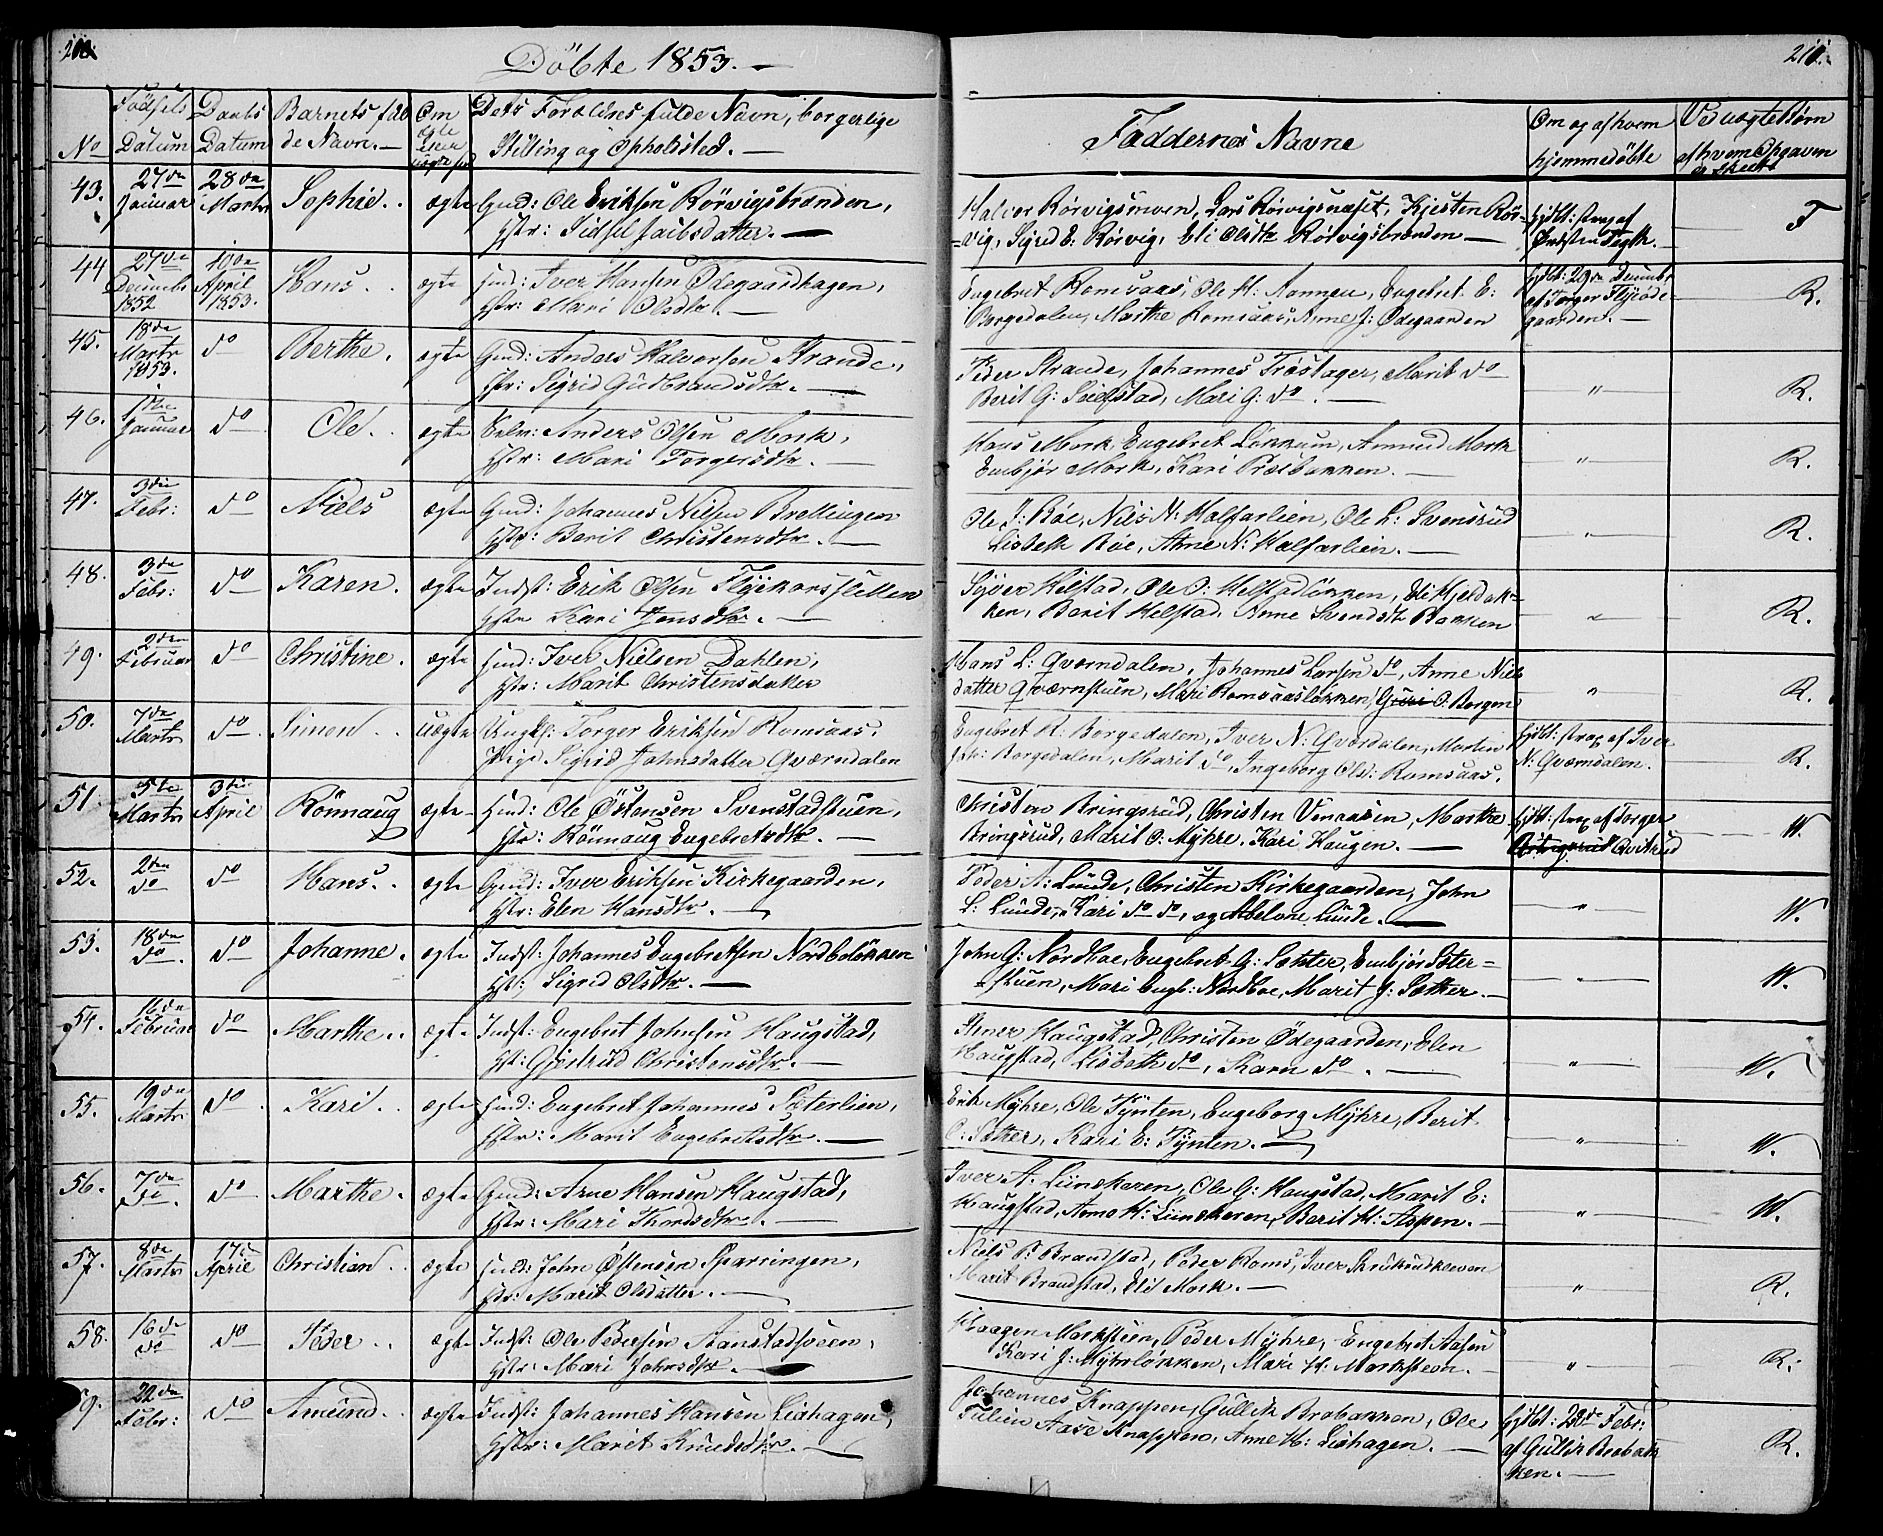 Döbte 1853. —
No
Födsels Datum
Daabs Datum
Barnets fulde Navn. —
Om ægte eller uægte
Dets Forældres fulde Navn, borgerlige
Stilling og Opholdsted. —
Faddernes Navne
Om og af hvem
hjemmedöbte
Ved uægte Börn
af hvem Opgaven
er skeet
43. 27de Januar 28de Marts Sophie. ægte Gmd: Ole Eriksen Rörvigsbranden,
Hstr: Sidsel Jacobsdatter. —
Halvor Rörvigsmoen, Lars Rörvigsnæset, Kjersten Rör-
vig, Sigrid E: Rörvig, Eli Olsdtr Rörvigsbranden —
hjdbt: strax af
— T
44 27de Decembr 1852 10de April 1853. Hans. ægte Hmd: Iver Hansen Ödegaardhagen,
Hstr: Mari Olsdtr. —
Engebret Romsaas, Ole H: Aonnen, Engebret E:
Borgedalen, Marthe Romsaas, Anne J: Ödegaarden
hjdbt: 29de Decembr
af Torger Flyöde-
gaarden. —
R.
45. 18de Marts 1853. do Berthe. ægte Gmd: Anders Halvorsen Strande,
Hstr: Sigrid Gudbrandsdtr. —
Peder Strande, Johannes Tröstager, Marit do
Berit G: Sulfstad, Mari G: do. —
" R.
46. Januar do Ole. ægte Selv: Anders Olsen Mork,
Hstr: Mari Torgersdtr. —
Hans Mork, Engebret Lökkum, Amund Mork
Embjör Mork, Kari Præsbakken. —
" R.
47. 3die Febr: do Niels ægte Gmd: Johannes Nielsen Brettingen
Hstr: Berit Christensdtr. —
Ole J: Böe, Nils N: Kalfarlien, Ole L: Svensrud
Lisbeth Böe, Anne N: Kalfarlien. —
" R.
48. 3de Febr: do Karen. ægte Indst: Erik Olsen Flyekorsfletten
Hstr Kari Jensdtr. —
Syver Kilstad, Ole O: Helstadlökken, Eli Kjeldak-
ken, Berit Helstad, Anne Svendsdtr Bakken
" R.
49. 2den Februar do Christine. ægte Hmd: Iver Nielsen Dahlen,
Hstr: Marit Christensdatter
Hans L: Qværndalen, Johannes Larsen do, Anne Niels
datter Qværnstuen, Mari Romsaaslökken, Guri O: Borgen
" R.
50. 7de Marts do. Simen. uægte Ungkl: Torger Eriksen Romsaas,
Pige Sigrid Johnsdatter Qværndalen
Engebret K: Borgedalen, Iver N: Qværdalen, Martin
Borgedalen, Marit do, Ingeborg Olsd: Romsaas.
hjdbt: strax af Iver
N: Qværndalen.
R.
51 5te Marts 3die April Rönnaug ægte Hmd: Ole Östensen Svenstadstuen,
Hstr: Rönnaug Engebretsdtr. —
Christen Bringsrud, Christen Vinaasen, Marthe
Bringsrud, Marit O: Myhre, Kari Haugen. —
hjdbt: strax af Torger
Bringsrud Qvitrud
— W.
52. 2den do do Hans. ægte Gmd: Iver Eriksen Kirkegaarden,
Hstr: Elen Hansdtr. —
Peder A: Lunde, Christen Kirkegaarden, John
L: Lunde, Kari do do, og Abelone Lunde. —
" W.
53. 18de do. do Johanne. ægte Indst: Johannes Engebretsen Nordbolökken
Hst: Sigrid Olsdtr. —
John G: Nordboe, Engebret G: Sæther, Embjör Sæter-
stuen, Mari Engb: Nordboe, Marit J: Sæther. —
" W.
54. 16de Februar do Marthe. ægte Indst: Engebret Johnsen Haugstad,
Hst: Gjertrud Christensdtr. —
Haugstad, Christen Ödegaarden, Elen
Haugstad, Lisbeth do, Karen do. —
" W.
55. 19de Marts do Kari. ægte Hmd: Engebret Johannes Sæterlien,
Hstr: Marit Engebretsdtr. —
Erik Myhre, Ole Tynten, Engeborg Myhre, Berit
O: Sæther, Kari E: Tynten. —
" W.
56. 7de do. do Marthe. ægte Gmd: Arne Hansen Haugstad,
Hstr: Mari Thordsdtr. —
Iver A: Liinskeren, Ole G: Haugstad, Marit E:
Haugstad, Arne H: Liinskeren, Berit H: Aspen. —
" W.
57. 8de Marts 17de April Christian. ægte John Östensen Sparringen,
Hstr: Marit Olsdatter. —
Niels P: Brandstad, Peder Roms, Iver
Marit Brandstad, Eli Mork. —
" R.
58. 16de do do Peder. ægte Indst: Ole Pedersen Aanstadsveen,
Hstr: Mari Johnsdtr. —
Haagen Markstuen, Peder Myhre, Engebret Aasen
Kari J: Myhrlökken, Mari H: Markstuen. —
" R.
59. 22de Febr: do Amund. ægte Indst: Johannes Hansen Liahagen,
Hstr: Marit Knudsdtr. —
Johannes Knappen, Gullik Brobakken, Ole
Aase Knappen, Anne H: Liahagen. —
hjdbt: 22de Febr:
af Gullik Brobak-
ken. —
R.